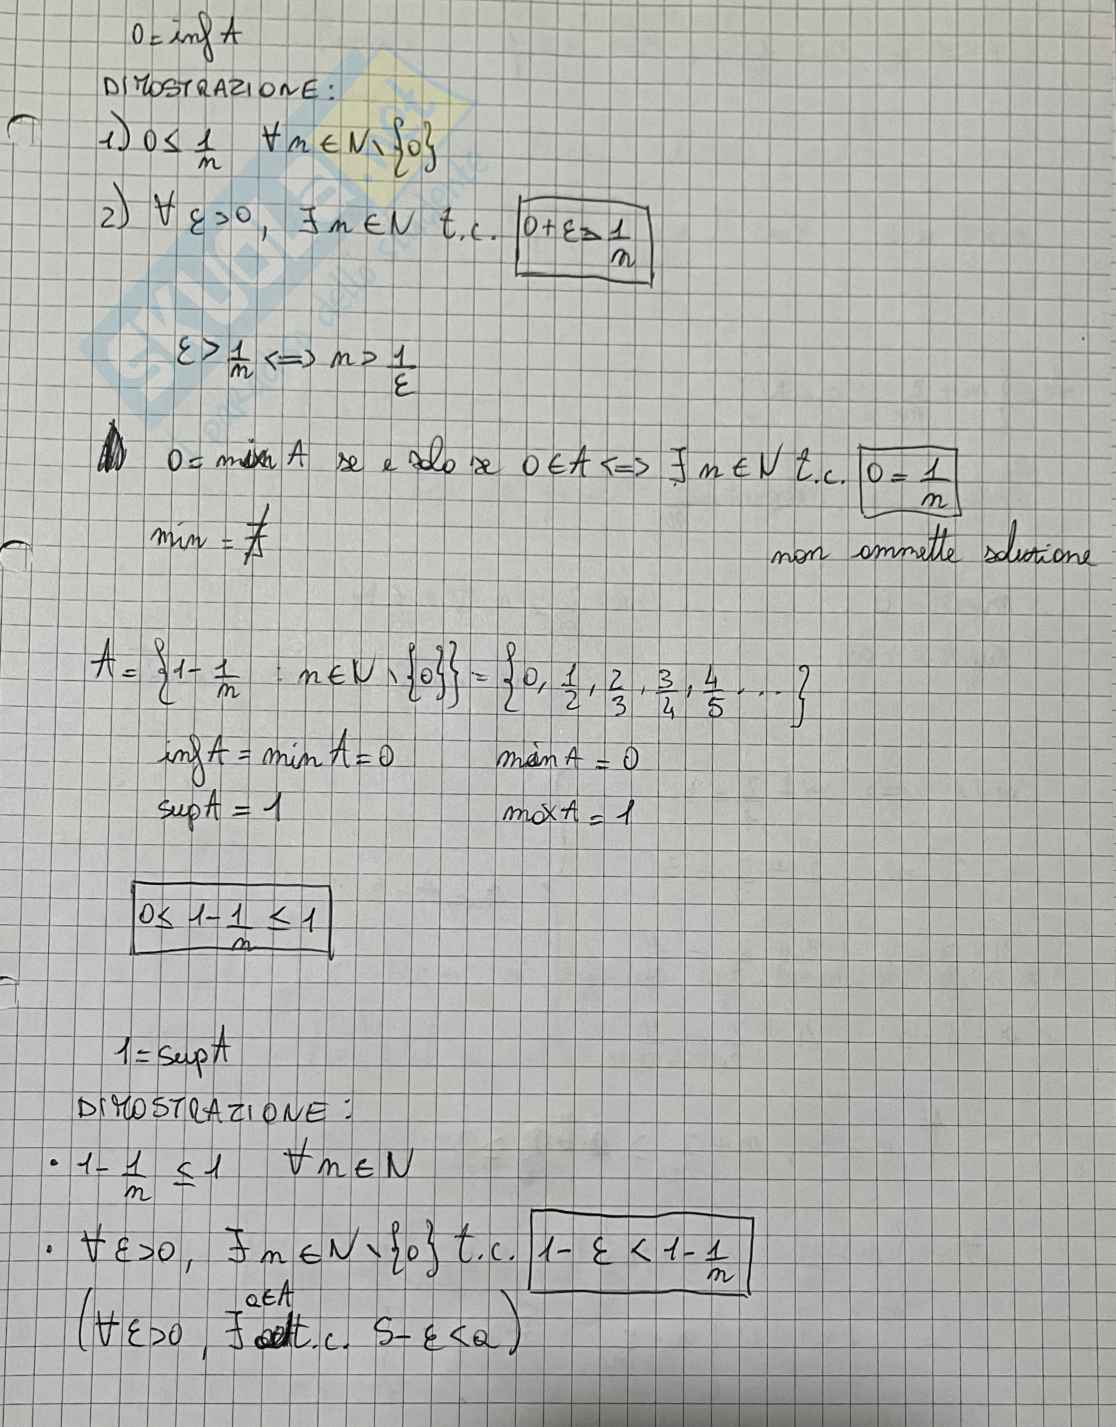 0 = inf A
DIMOSTRAZIONE:
1) 0 ≤ 1/n ∀ n ∈ N \ {0}
2) ∀ ε>0, ∃ n ∈ N t.c. 0+ε > 1/n
ε > 1/n <=> n > 1/ε
0 = min A se e solo se 0 ∈ A <=> ∃ n ∈ N t.c. 0 = 1/n
min = ∄
non ammette solutione
A = {1 - 1/n : n ∈ N \ {0}} = {0, 1/2, 2/3, 3/4, 4/5, ... }
inf A = min A = 0 min A = 0
sup A = 1 max A = 1
0 ≤ 1 - 1/n ≤ 1
1 = sup A
DIMOSTRAZIONE:
• 1 - 1/n ≤ 1 ∀ n ∈ N
• ∀ ε>0, ∃ n ∈ N \ {0} t.c. 1 - ε < 1 - 1/n
(∀ ε>0, ∃ a∈A t.c. S - ε < a)
SKUOLA.net